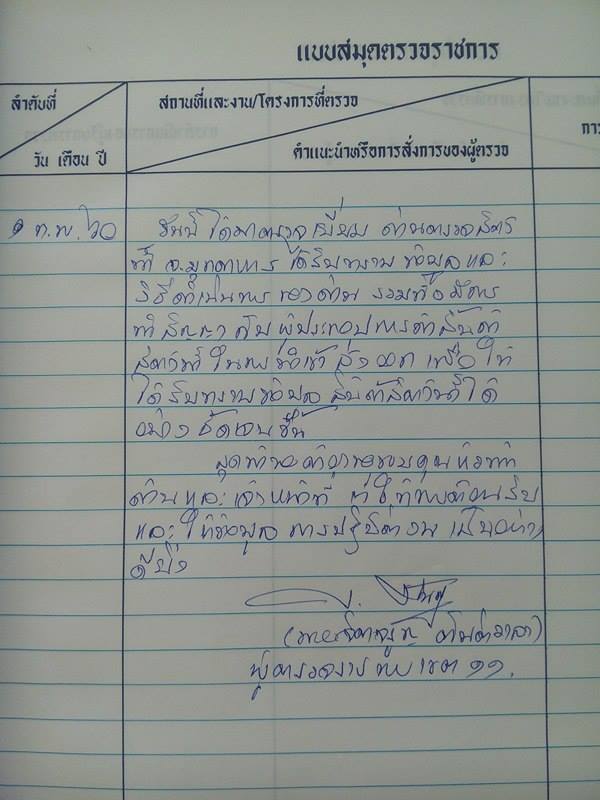 แบบสมุดตรวจราชการ
ลำดับที่
สถานที่และงาน/โครงการที่ตรวจ
วัน เดือน ปี
คำแนะนำหรือการสั่งการของผู้ตรวจ
กา
๑ ก.พ. ๖๐
วันนี้ ได้มาตรวจเยี่ยม ด่านตรวจสัตว์
ที่ จ.มุกดาหาร ได้รับทราบ ข้อมูลและ
วิธีดำเนินการ ของด่าน รวมทั้ง มีการ
ทำ สัญญา กับ ผู้ประกอบการค้าสินค้า
สัตว์น้ำ ในการนำเข้า ส่งออก เพื่อ ให้
ได้รับทราบ ข้อมูล สินค้าสัตว์น้ำ ได้
อย่าง ชัดเจนขึ้น
สุดท้าย ต้องขอขอบคุณ หัวหน้า
ด่าน และ เจ้าหน้าที่ ที่ ให้การต้อนรับ
และ ให้ข้อมูล การปฏิบัติงาน เป็นอย่าง
ดียิ่ง
ผู้ตรวจราชการ เขต ๑๑.